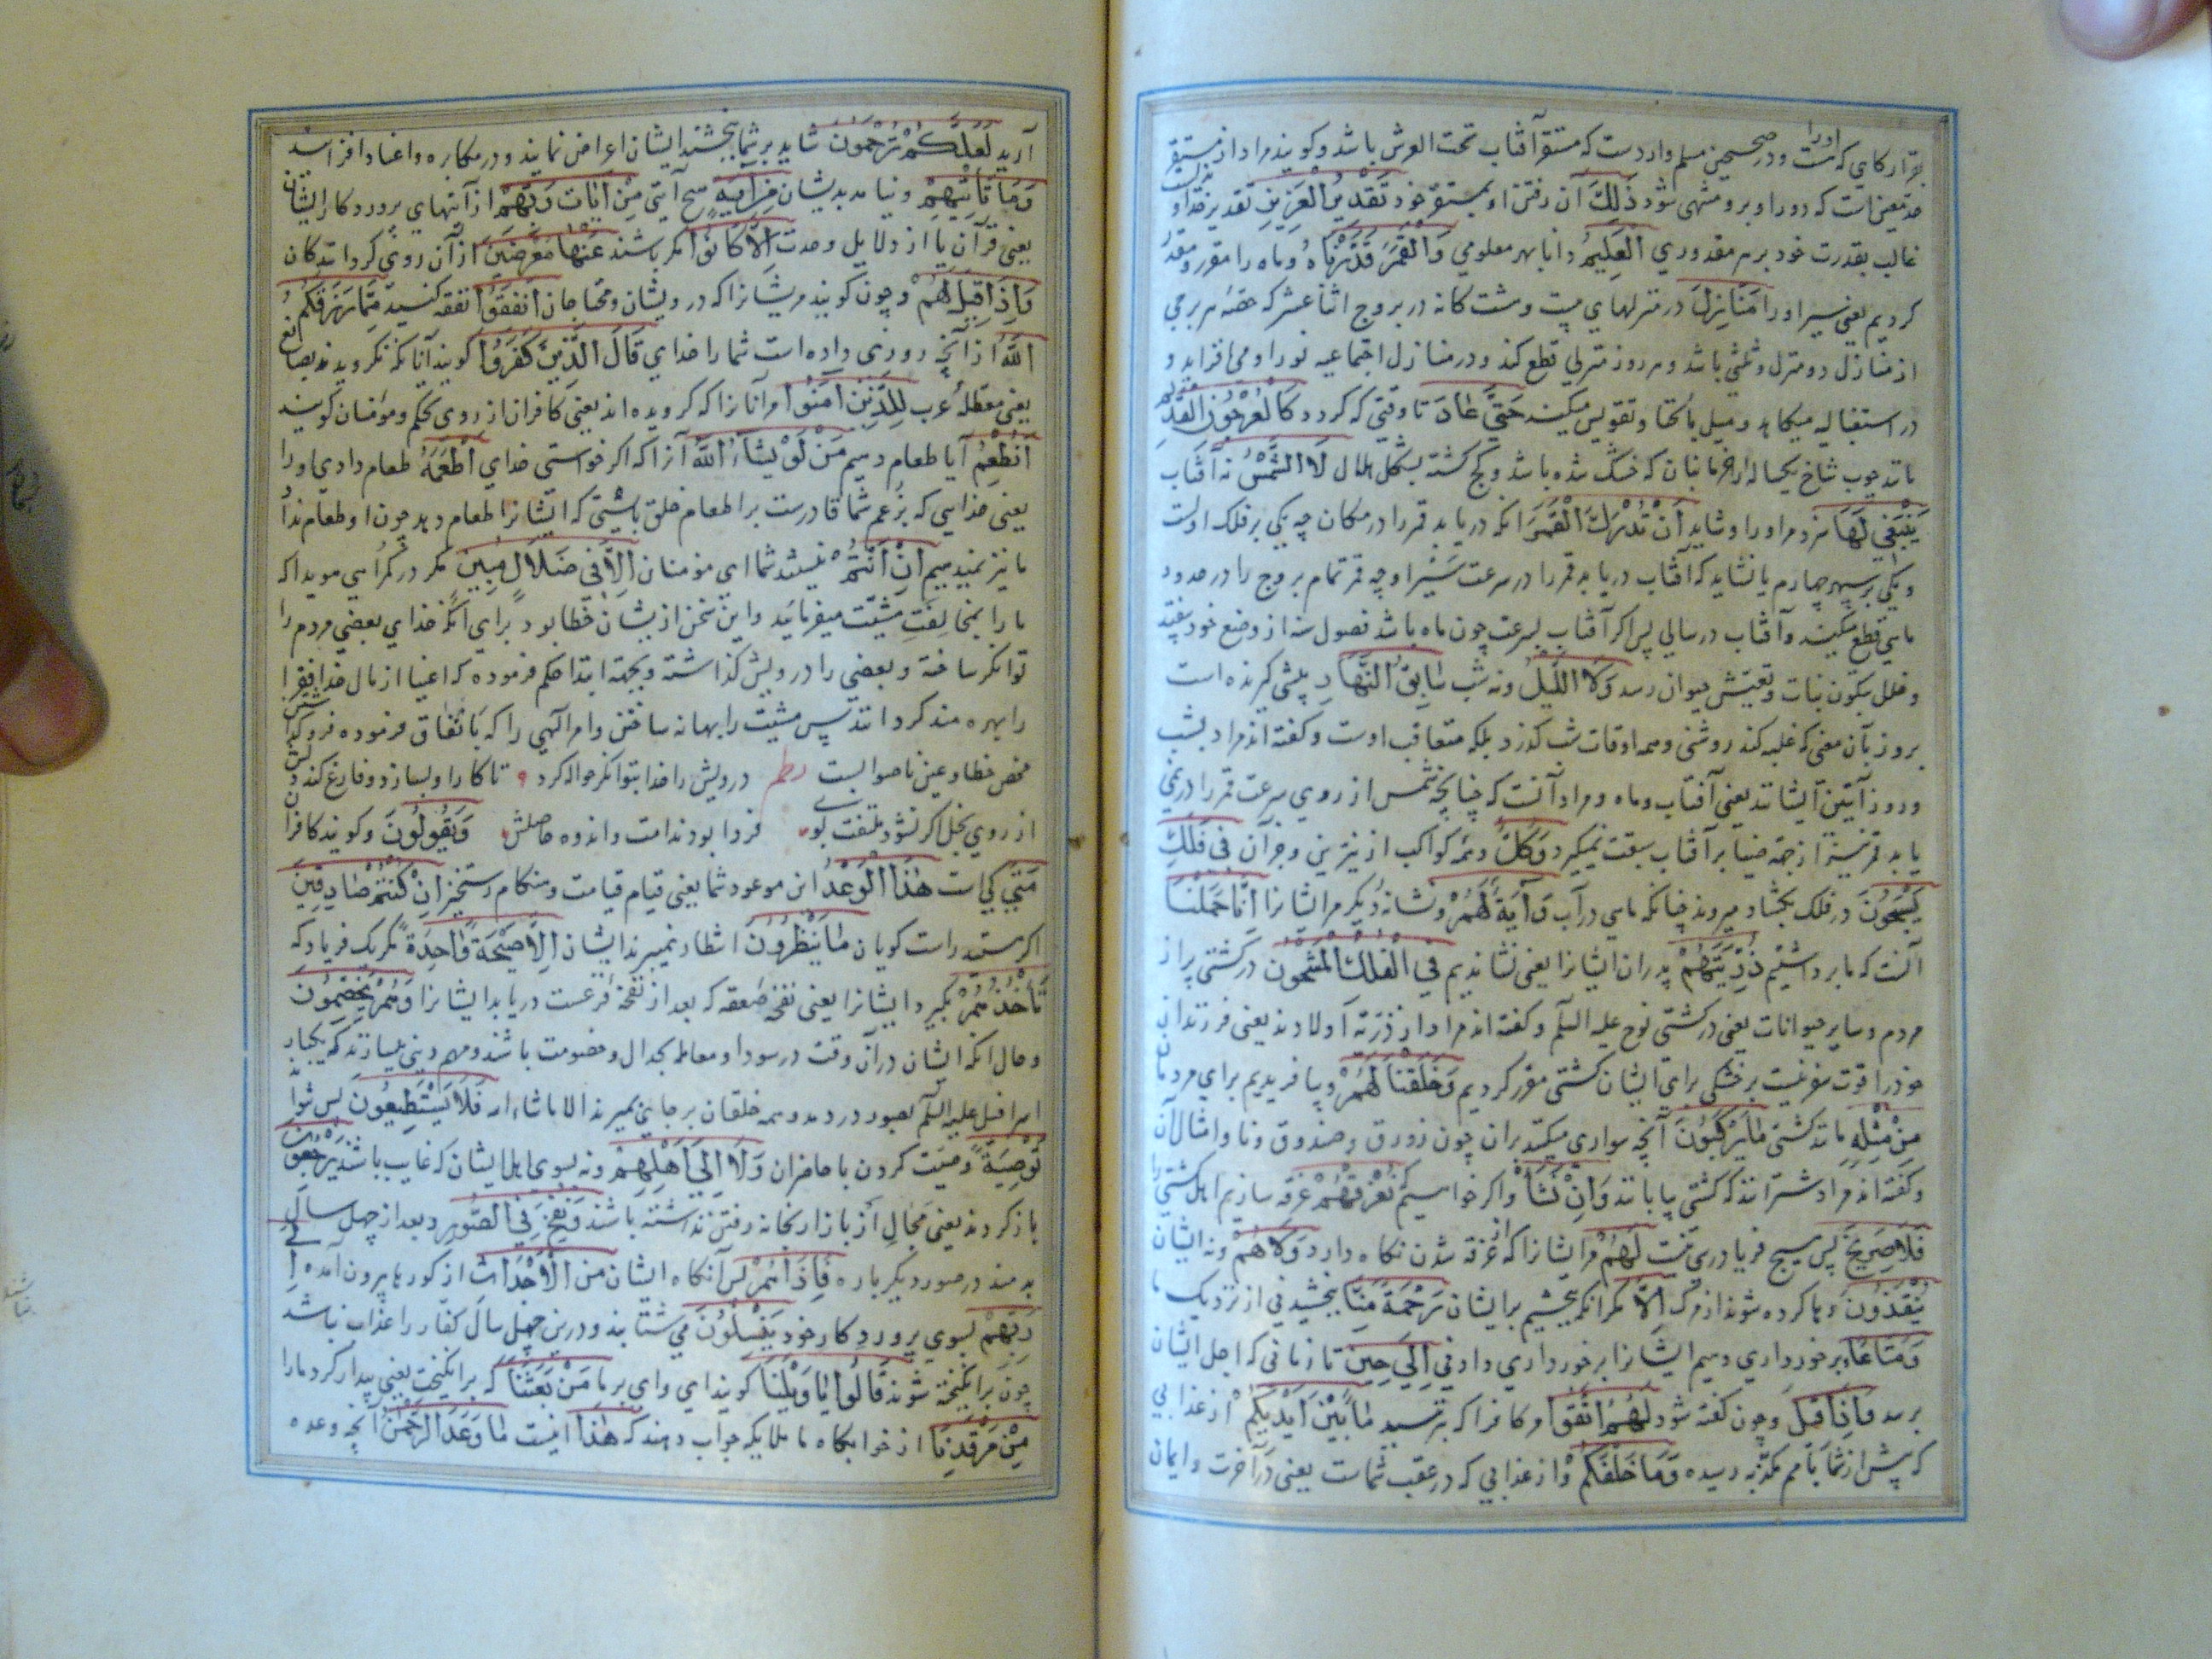 بقرار کاهی که اوراست و در صحیحین مسلم وارد است که مستقر آفتاب تحت العرش باشد و کویند مراد از مستقر
حد معین است که دور او برو منتهی شود ذَلِكَ آن رفتن او بمستقر خود تَقْدِيرُ الْعَزِيزِ تقدیر خداوند
غالب بقدرت خود بر هر مقدوری الْعَلِيمِ دانا بهر معلومی وَالْقَمَرَ قَدَّرْنَاهُ و ماه را مقرر و مقدر
کردیم یعنی سیر او را مَنَازِلَ در منزلهای بیست و هشت کانه در بروج اثنا عشر که حصه هر برجی
از منازل دو منزل و ثلثی باشد و هر روز منزلی قطع کند و در منازل اجتماعیه نور او می افزاید و
در استقبالیه میکاهد و میل بانمحا و تقویس میکند حَتَّى عَادَ تا وقتی که کردد كَالْعُرْجُونِ الْقَدِيمِ
مانند چوب شاخ یکساله از خرمابنان که خشک شده باشد و کج کشته بشکل هلال لَا الشَّمْسُ نه آفتاب
يَنْبَغِي لَهَا سزد مر او را و شاید أَنْ تُدْرِكَ الْقَمَرَ انکه دریابد قمر را در مکان چه یکی بر فلک اولست
و یکی بر سپهر چهارم یا نشاید که آفتاب دریابد قمر را در سرعت سیر او چه قمر تمام بروج را در حدود
ماهی قطع میکند و آفتاب در سالی پس اکر آفتاب بسرعت چون ماه باشد فصول سنه از وضع خود بیفتد
و خلل بتکون نبات و تعیش حیوان رسد وَلَا اللَّيْلُ و نه شب سَابِقُ النَّهَارِ پیشی کیرنده است
بروز بآن معنی که غلبه کند روشنی و همه اوقات شب کذرد بلکه متعاقب اوست و کفته اند مراد بشب
و روز آیتین ایشانند یعنی آفتاب و ماه و مراد آنست که چنانچه شمس از روی سرعت قمر را در نمی
یابد قمر نیز از جهة ضیا بر آفتاب سبقت نمیکیرد وَكُلٌّ و همه کواکب از نیرین و جز آن فِي فَلَكٍ
يَسْبَحُونَ در فلک بخشاد میروند چنانکه ماهی در آب وَآيَةٌ لَهُمْ و نشانه دیکر مر ایشانرا أَنَّا حَمَلْنَا
آنست که ما برداشتیم ذُرِّيَّتَهُمْ پدران ایشانرا یعنی نشاندیم فِي الْفُلْكِ الْمَشْحُونِ در کشتی پر از
مردم و سایر حیوانات یعنی در کشتی نوح علیه السلم و کفته اند مراد از ذریة اولادند یعنی فرزندان
خود را قوت سفر نیست بر خشکی برای ایشان کشتی مقرر کردیم وَخَلَقْنَا لَهُمْ و بیافریدیم برای مردمان
مِنْ مِثْلِهِ مانند کشتی مَا يَرْكَبُونَ آنچه سواری میکنند بران چون زورق و صندوق و نا و امثال آن
و کفته اند مراد شترانند که کشتی بیابانند وَإِنْ نَشَأْ و اکر خواهیم نُغْرِقْهُمْ غرقه سازیم اهل کشتی را
فَلَا صَرِيخَ پس هیچ فریادرسی نیست لَهُمْ مر ایشانرا که از غرقه شدن نکاه دارد وَلَا هُمْ و نه ایشان
يُنْقَذُونَ رها کرده شوند از مرک إِلَّا مکر انکه ببخشیم بر ایشان رَحْمَةً مِنَّا بخشیدنی از نزدیک ما
وَمَتَاعًا و برخورداری دهیم ایشانرا برخورداری دادنی إِلَى حِينٍ تا زمانی که اجل ایشان
برسد وَإِذَا قِيلَ و چون کفته شود لَهُمُ اتَّقُوا مر کافرا که بترسید مَا بَيْنَ أَيْدِيكُمْ از عذابی
که پیش از شما بامم مکذبه رسیده وَمَا خَلْفَكُمْ و از عذابی که در عقب شماست یعنی در آخرت و ایمان
آرید لَعَلَّكُمْ تُرْحَمُونَ شاید بر شما ببخشند ایشان اعراض نمایند و در مکابره و عناد افزایند
وَمَا تَأْتِيهِمْ و نیامد بدیشان مِنْ آيَةٍ هیچ آیتی مِنْ آيَاتِ رَبِّهِمْ از آیتهای پروردکار ایشان
یعنی قرآن یا از دلایل وحدت إِلَّا كَانُوا مکر باشند عَنْهَا مُعْرِضِينَ از آن روی کردانندکان
وَإِذَا قِيلَ لَهُمْ و چون کویند مریشانرا که درویشان و محتاجان أَنْفِقُوا نفقه کنید مِمَّا رَزَقَكُمُ
اللَّهُ از آنچه روزی داده است شما را خدای قَالَ الَّذِينَ كَفَرُوا کویند آنانکه نکرویدند بصانع
یعنی معطلهٔ عرب لِلَّذِينَ آمَنُوا مر آنانرا که کرویده اند یعنی کافران از روی تحکم و مؤمنان کویند
أَنُطْعِمُ آیا طعام دهیم مَنْ لَوْ يَشَاءُ اللَّهُ آنرا که اکر خواستی خدای أَطْعَمَهُ طعام دادی او را
یعنی خدایی که بزعم شما قادرست بر اطعام خلق بایستی که ایشانرا طعام دهد چون او طعام نداد
ما نیز نمیدهیم إِنْ أَنْتُمْ نیستند شما ای مؤمنان إِلَّا فِي ضَلَالٍ مُبِينٍ مکر در کمراهی هویدا که
ما را بمخالفت مشیت میفرمایند و این سخن از یشان خطا بود برای انکه خدای بعضی مردم را
توانکر ساخته و بعضی را درویش کذاشته و بجهة ابتدا حکم فرموده که اغنیا از مال خدا فقرا
را بهره مند کردانند پس مشیت را بهانه ساختن و امر الهی را که بانفاق فرموده فرو کذاشتن
محض خطا و عین ناصوابست نظم درویش را خدا بتوانکر حواله کرد تا کار او بسازد و فارغ کند دلش
از روی بخل اکر نشود ملتفت بوی فردا بود ندامت و اندوه حاصلش وَيَقُولُونَ و کویند کافران
مَتَى کی است هَذَا الْوَعْدُ این موعود شما یعنی قیام قیامت و هنکام رستخیز إِنْ كُنْتُمْ صَادِقِينَ
اکر هستید راست کویان مَا يَنْظُرُونَ انتظار نمیبرند ایشان إِلَّا صَيْحَةً وَاحِدَةً مکر یک فریاد که
تَأْخُذُهُمْ بکیرد ایشانرا یعنی نفخه صعقه که بعد از نفخه فزعست دریابد ایشانرا وَهُمْ يَخِصِّمُونَ
و حال انکه ایشان در آن وقت در سودا و معامله بجدال و خصومت باشند و مهم دینی میسازند که یکبار
اسرافیل علیه السلم بصور در دمد و همه خلقان بر جای بمیرند الا ما شاء الله فَلَا يَسْتَطِيعُونَ پس نتوانند
تَوْصِيَةً وصیت کردن با حاضران وَلَا إِلَى أَهْلِهِمْ و نه بسوی اهل ایشان که غایب باشند يَرْجِعُونَ
بازکردند یعنی مجال از بازار بخانه رفتن نداشته باشند وَنُفِخَ فِي الصُّورِ و بعد از چهل سال
بدمند در صور دیکر باره فَإِذَا هُمْ پس آنکاه ایشان مِنَ الْأَجْدَاثِ از کورها بیرون آمده إِلَى
رَبِّهِمْ بسوی پروردکار خود يَنْسِلُونَ می شتابند و درین چهل سال کفار را عذاب نباشد
چون برانکیخته شوند قَالُوا يَا وَيْلَنَا کویند ای وای بر ما مَنْ بَعَثَنَا که برانکیخت یعنی بیدار کرد ما را
مِنْ مَرْقَدِنَا از خوابکاه ما ملایکه جواب دهند که هَذَا اینست مَا وَعَدَ الرَّحْمَنُ آنچه وعده